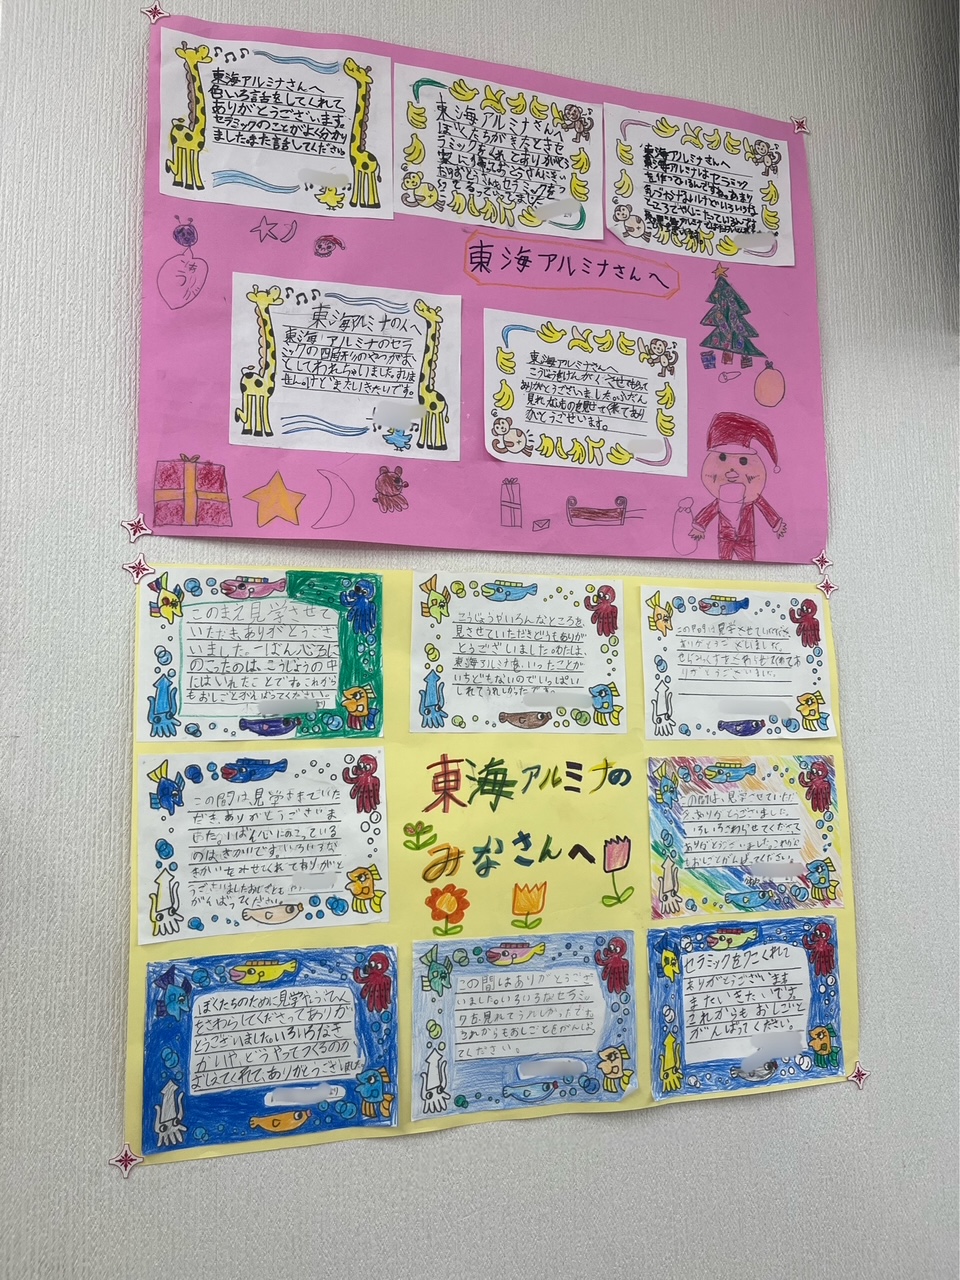 東海アルミナさんへ
色いろ話をしてくれて
ありがとうございます。
セラミックのことがよく分かり
ました。また話してください。
東海アルミナさんへ
ぼくたちがきたときセ
ラミックをくれてありがとう
東海アルミナさんへ
東海アルミナさんへ
東海アルミナのんへ
東海アルミナのセラ
ミックの四角形のやつがお
としてわれちゃいました。すいま
せん。けどまたいきたいです。
東海アルミナさんへ
こうじょうけんがくさせてもらって
ありがとうございました。ふだん
見れないものを見せてくれてあり
がとうございます。
このまえ見学させて
いただきありがとうござ
いました。一ばん心ろに
のこったのは、こうじょうの中
にはいれたことでねこれから
もおしごとがんばってください。
より
こうじょうやいろんなところを、
見させていただきどうもありが
とうございました。わたしは、
東海アルミナを、いったことが
いちどもないのでいっぱい
しれてうれしかったです。
この間は見学させていただき
ありがとうございました。
りがとうございました。
この間は、見学させていた
だき、ありがとうございま
した。いちばん心にのこっている
のは、きかいです。いろいろな
きかいをみせてくれてありがと
うございましたおしごとも
がんばってください。
東海アルミナの
みなさんへ
この間は、見学させていただ
き、ありがとうございました。
いろいろさわらせてくださって
ありがとうございましたこれから
もおしごとがんばってください。
ぼくたちのために見学やじっけん
をさわらしてくださってありが
とうございました。いろいろなき
かいや、どうやってつくるのか
おしえてくれて、ありがとうございました。
より
この間はありがとうござ
いました。いろいろなセラミッ
クを見れてうれしかったです。
これからもおしごとをがんばっ
てください。
セラミックを7こくれて
ありがとうございます
またいきたいです。
これからもおしごと
がんばってください。